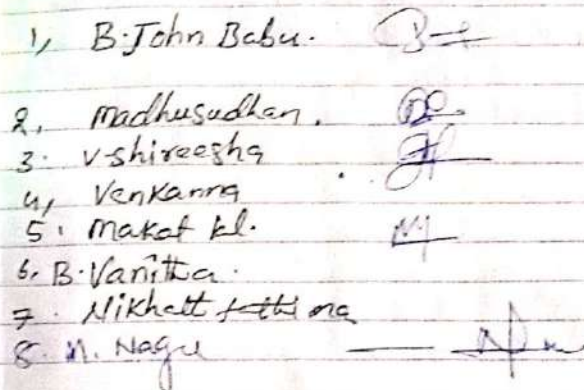 1, B. John Babu.
2, Madhusudhan.
3. V-shireesha
4, Venkanna
5. Makat kl.
6. B. Vanitha.
7. Nikhatt fathima
8. M. Nagu